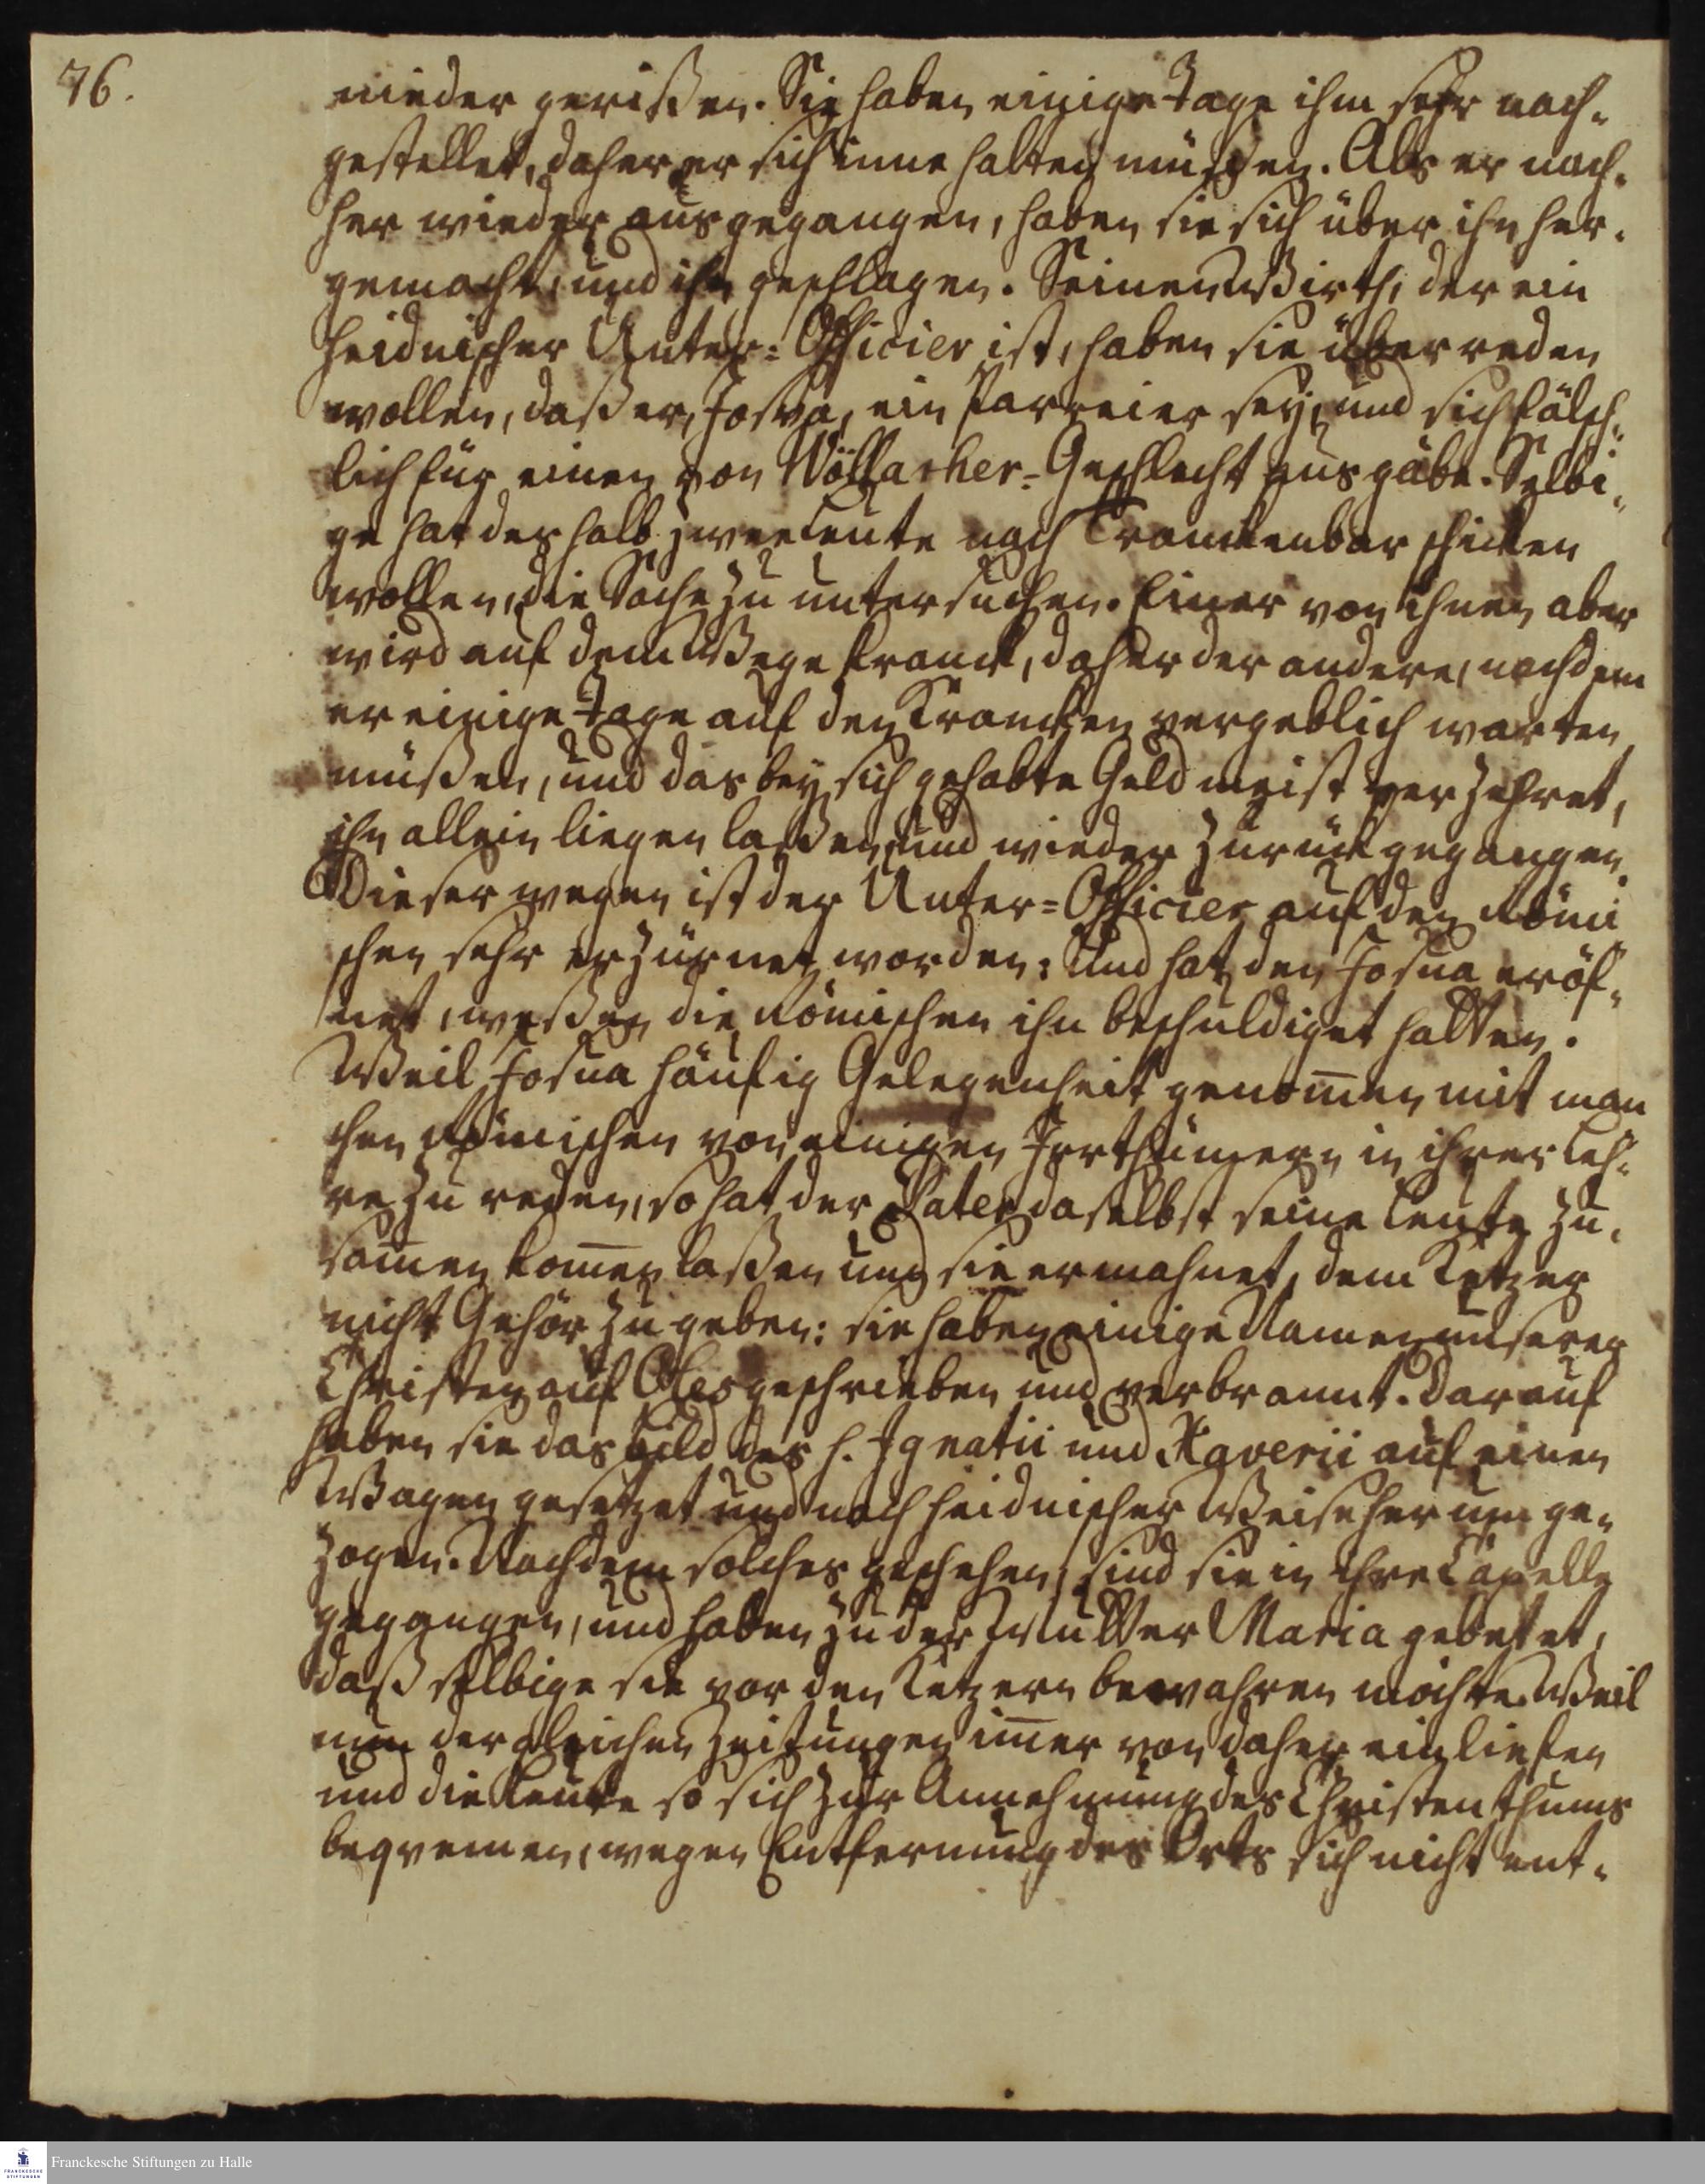 76.
nieder gerißen. Sie haben einige Tage ihm sehr nach-
gestellet, daher er sich inne halten müßen. Als er nach-
her wieder ausgegangen, haben sie sich über ihn her-
gemacht, und ihn geschlagen. Seinen Wirth, der ein
heidnischer Unter-Officier ist, haben sie überreden
wollen, daß er, Josua, ein Parreier sey, und sich fälsch-
lich für einen von Wöllacher-Geschlecht ausgäbe. Selbi-
ge hat deshalb zwee Leute nach Tranckenbar schicken
wollen, die Sache zu untersuchen. Einer von ihnen aber
wird auf dem Wege kranck, daher der andere, nachdem
er einige Tage auf den Krancken vergeblich warten
müßen, und das bey sich gehabte Geld meist verzehret,
ihn allein liegen laßen, und wieder zurück gegangen.
Dieserwegen ist der Unter-Officier auf den Römi
schen sehr erzürnet worden: und hat den Josua eröf-
net, weßen die Römischen ihn beschuldiget hätten.
Weil Josua häufig Gelegenheit genom̅en mit man
chen Römischen von einigen Irrthümern in ihrer Leh-
re zu reden, so hat der Pater daselbst seine Leute zu-
sam̅en kom̅en laßen und sie ermahnet, dem Ketzer
nicht Gehör zu geben: sie haben einige Namen unserer
Christen auf Oles geschrieben und verbrannt. Darauf
haben sie das Bild des h. Ignatii und Xaverii auf einen
Wagen gesetzet und nach heidnischer Weise herum ge-
zogen. Nachdem solches geschehen, sind sie in ihre Capelle
gegangen, und haben zu der Mutter Maria gebetet,
daß selbige sie vor den Ketzern bewahren möchte. Weil
nun dergleichen Zeitungen im̅er von daher einliefen
und die Leute so sich zur Annehmung des Christenthums
beqvemen, wegen Entfernung des Orts sich nicht ent-
Franckesche Stiftungen zu Halle
FRANCKESCHE
STIFTUNGEN